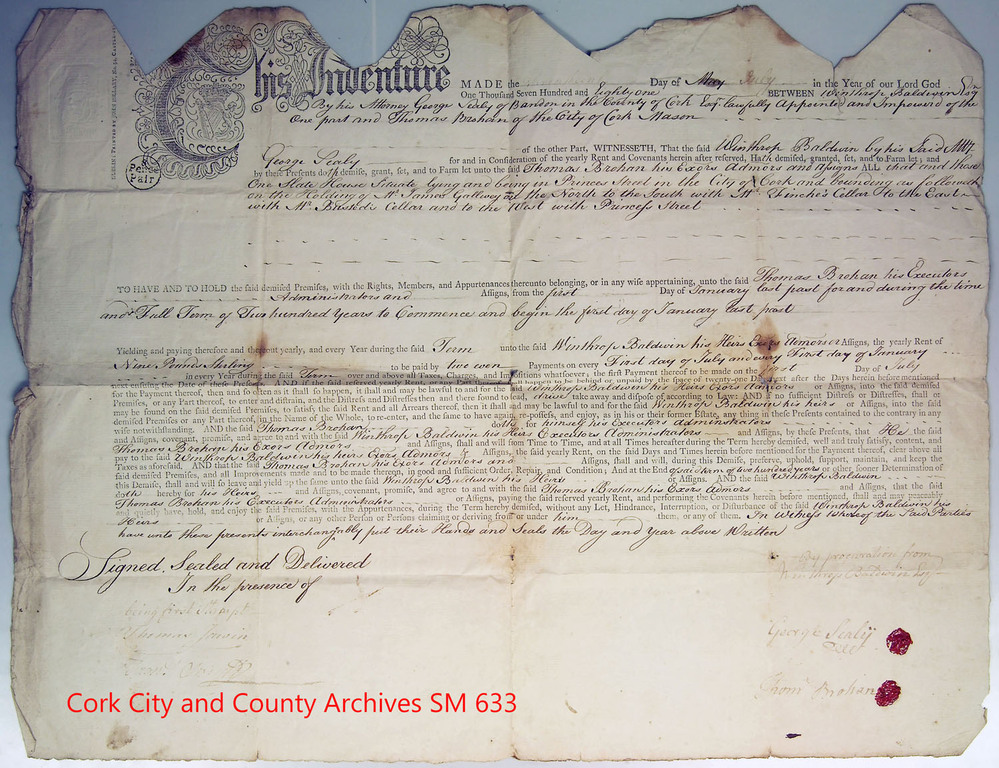 This Indenture MADE the Day of May July in the Year of our Lord God
One Thousand Seven Hundred and eighty one BETWEEN Winthrop Baldwin Esqr
By his Attorney George Sealy of Bandon in the County of Cork Esqr. lawfully Appointed and Impowerd of the
One part and Thomas Brohan of the City of Cork Mason
of the other Part, WITNESSETH, That the said Winthrop Baldwin by his Said Atty
George Sealy for and in Consideration of the yearly Rent and Covenants herein after reserved, Hath demised, granted, set, and to Farm let; and
by these Presents doth demise, grant, set, and to Farm let unto the said Thomas Brohan his Exors Admors and Assigns ALL that and those
One Slate House Situate lying and being in Princes Street in the City of Cork and bounding as followeth
on the Holding of Mr. James Gallwey at the North to the South with Mr. Finche's Cellar to the East
with Mr. Busteds Cellar and to the West with Princess Street
TO HAVE AND TO HOLD the said demised Premises, with the Rights, Members, and Appurtenances thereunto belonging, or in any wise appertaining, unto the said Thomas Brohan his Executors
Administrators and Assigns, from the first Day of January last past for and during the time
and Full Term of Two hundred Years to Commence and begin the first day of January last past
Yielding and paying therefore and thereout yearly, and every Year during the said Term unto the said Winthrop Baldwin his Heirs Exors Admors or Assigns, the yearly Rent of
Nine Pounds Sterling to be paid by two even Payments on every First day of July and every First day of January
in every Year during the said Term over and above all Taxes, Charges, and Impositions whatsoever; the first Payment thereof to be made on the first Day of July
next ensuing the Date of these Presents AND if the said reserved yearly Rent, or any Part thereof shall happen to be behind or unpaid by the space of twenty-one Days next after the Days herein before mentioned
for the Payment thereof, then and so often as it shall so happen it shall and may be lawful to and for the said Winthrop Baldwin his Heirs Exors Admors or Assigns, into the said demised
Premises, or any Part thereof, to enter and distrain, and the Distress and Distresses then and there found to lead, drive take away and dispose of according to Law: AND if no sufficient Distress or Distresses, shall or
may be found on the said demised Premises, to satisfy the said Rent and all Arrears thereof, then it shall and may be lawful to and for the said Winthrop Baldwin his heirs or Assigns, into the said
demised Premises or any Part thereof, in the Name of the Whole, to re-enter, and the same to have again, re-possess, and enjoy, as in his or their former Estate, any thing in these Presents contained to the contrary in any
wise notwithstanding. AND the said Thomas Brohan doth for himself his Executors Adminstrators
and Assigns, covenant, promise, and agree to and with the said Winthrop Baldwin his Heirs Executors Administrators and Assigns, by these Presents, that He the said
Thomas Brohan his Exors Admors and Assigns, shall and will from Time to Time, and at all Times hereafter during the Term hereby demised, well and truly satisfy, content, and
pay to the said Winthrop Baldwin his heirs Exors Admors & Assigns, the said yearly Rent, on the said Days and Times herein before mentioned for the Payment thereof, clear above all
Taxes as aforesaid. AND that the said Thomas Brohan his Exors Admors and Assigns, shall and will, during this Demise, preserve, uphold, support, maintain, and keep the
said demised Premises, and all Improvements made and to be made thereon, in good and sufficient Order, Repair, and Condition; And at the End of said term of two hundred years or other, sooner Determination of
this Demise, shall and will so leave and yield up the same unto the said Winthrop Baldwin his Heirs or Assigns. AND the said Winthrop Baldwin
doth hereby for his Heirs and Assigns, covenant, promise, and agree to and with the said Thomas Brohan his Exors Admors and Assigns, that the said
Thomas Brohan his Executor Administrators or Assigns, paying the said reserved yearly Rent, and performing the Covenants herein before mentioned, shall and may peaceably
and quietly have, hold, and enjoy the said Premises, with the Appurtenances, during the Term hereby demised, without any Let, Hindrance, Interruption, or Disturbance of the said Winthrop Baldwin his
Heirs or Assigns, or any other Person or Persons claiming or deriving from or under him them, or any of them. In Witness Whereof the Said Parties
have unto these presents interchangably put their Hands and Seals the Day and Year above Written
Signed, Sealed and Delivered
In the presence of
being first Stampt
Thomas
By procuration from
Winthrop Baldwin Esqr
George Sealy
Thom Brohan
Cork City and County Archives SM 633